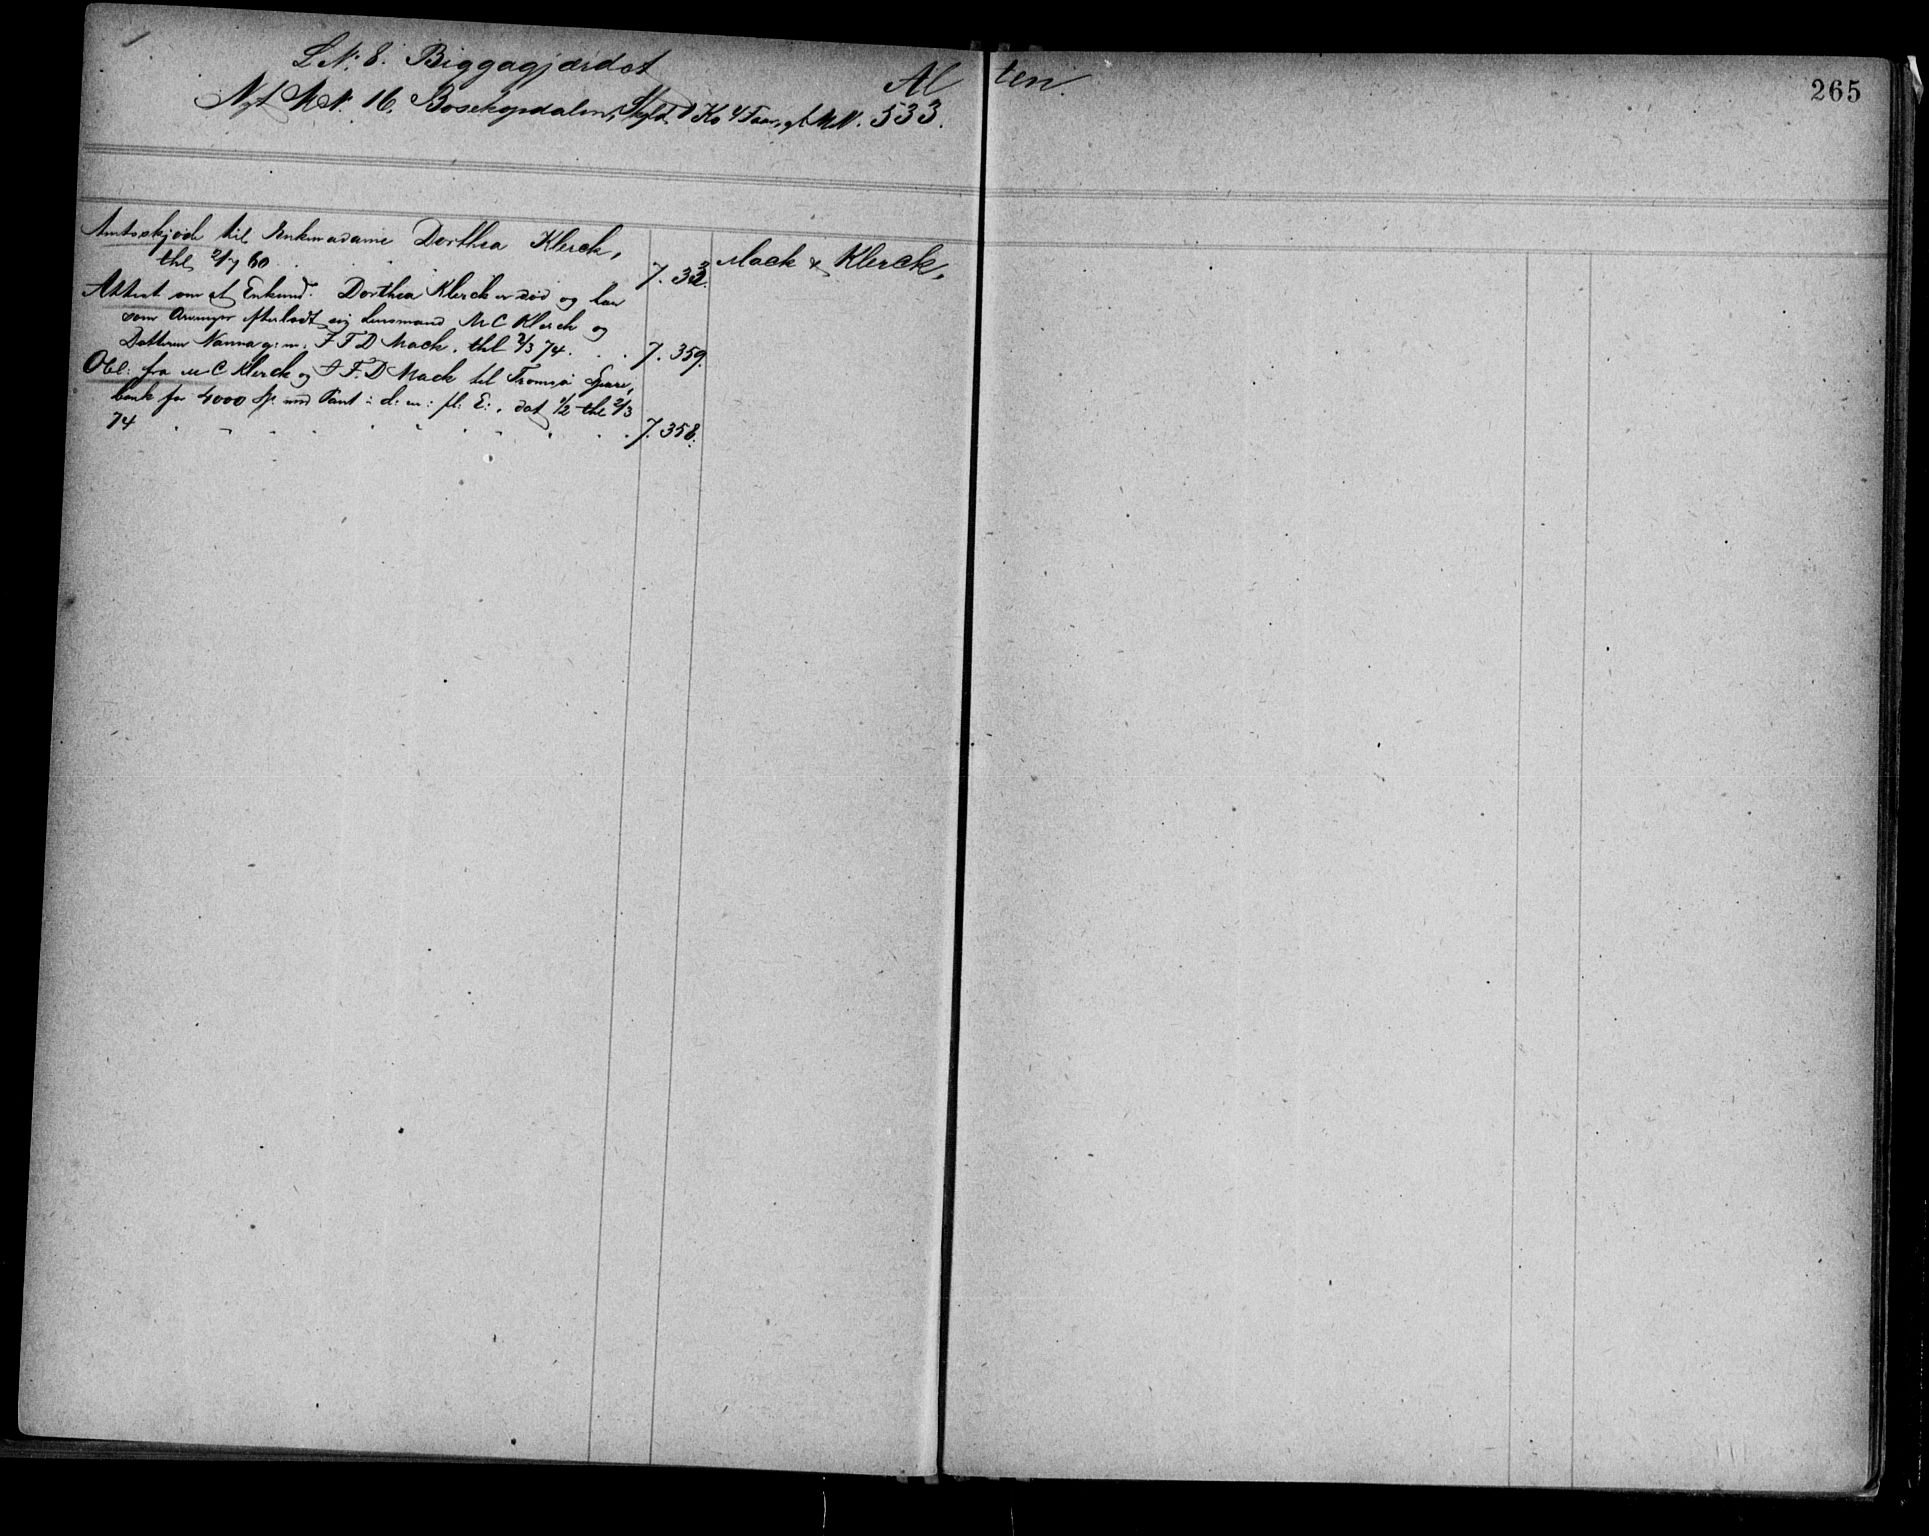 LN: 8. Biggagjærdet
Alten.
265
Nyt MN. 16, Bosekopdalen, Skyld 0 Ko 4 Faar, gl MN. 533.
Amtsskjøde til Enkemadame Dorthea Klerck,
thl 2/7 60 . . . 7. 332.
Mack & Klerck,
Attest om at Enkemd: Dorthea Klerck er død og har
som Arvinger efterladt sig Lensmand M C Klerck og
Datteren Nanna g: m: F T D Mack. thl 2/3 74. . . 7. 359.
Obl: fra M C Klerck og F. D Mack til Tromsø Spare,
bank for 4000 Sp: med Pant i d: m: fl: E:, dat 1/2 thl 2/3
74 . . . 7. 358.